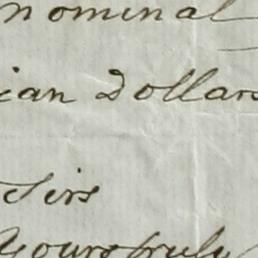 nominal
ian Dollars
Sirs
Yours truly